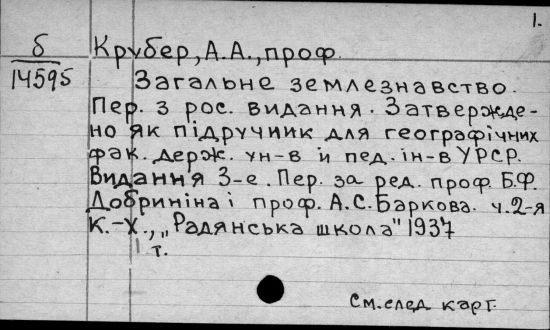 1.
б
14595
Крубер, А.А., проф.
Загальне землезнавство.
Пер. з рос. видання. Затвержде-
но як підручник для географічних
фак. держ. ун-в й пед. ін-в УРСР.
Видання 3-е. Пер. за ред. проф. Б.Ф.
Добриніна і проф. А.С. Баркова. ч. 2-я
К.-Х., „Радянська школа" 1937
1 т.
См. след карт.